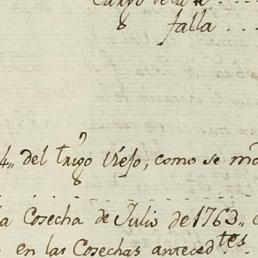 falla ...
4,, del trigo viejo, como se
la Cosecha de Julio de 1763,,
en las Cosechas anteced.tes